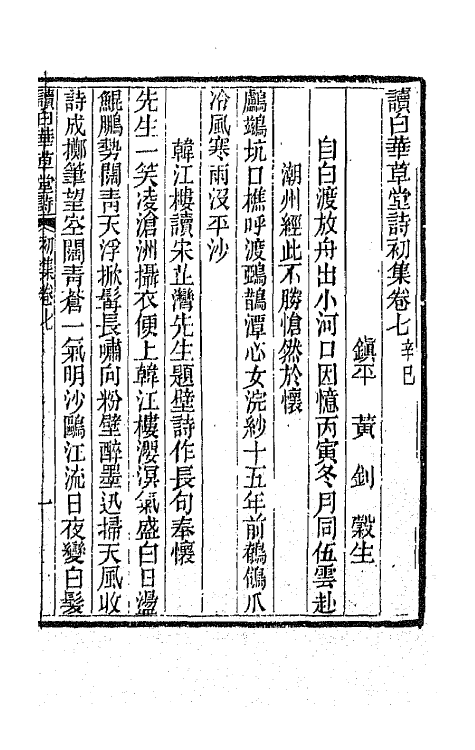 讀白華草堂詩初集卷七 辛巳
鎮平 黃 釗 穀生
自白渡放舟出小河口因憶丙寅冬月同伍雲赴
潮州經此不勝愴然於懷
鸕鷀坑口樵呼渡鵶鵲潭心女浣紗十五年前鵂鶹爪
冷風寒雨沒平沙
韓江樓讀宋芷灣先生題壁詩作長句奉懷
先生一笑凌滄洲攝衣便上韓江樓瀴溟氣盛白日盪
鯤鵬勢闊靑天浮掀髯長嘯向粉壁醉墨迅掃天風收
詩成擲筆望空闊靑蒼一氣明沙鷗江流日夜變白髮
讀白華草堂詩 初集卷七 一